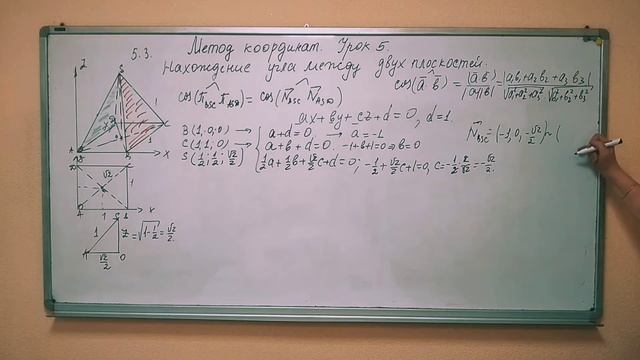 5.3. Метод координат. Урок 5.
Нахождение угла между двух плоскостей.
cos(a^b) = |a b| / |a||b| = |a₁b₁+a₂b₂+a₃b₃| / √a₁²+a₂²+a₃² √b₁²+b₂²+b₃²
= cos(N_BSC ^ N_ASD)
ax+by+cz+d=0, d=1.
B(1,0,0) → a+d=0, → a=-1
C(1,1,0) → a+b+d=0. -1+b+1=0 ⇒ b=0
S(1/2; 1/2; √2/2) 1/2a+1/2b+√2/2c+d=0; -1/2+√2/2c+1=0, c=-1/2·2/√2=-√2/2.
N_BSC=(-1, 0, -√2/2) ~ (
z
S
1
C
x
√2
1
x
1
S
1
z=√1-1/2=√2/2.
A
√2/2
O